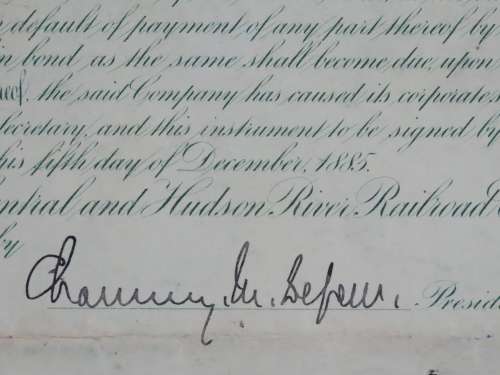 default of payment of any part thereof by
in bond as the same shall become due, upon
reof, the said Company has caused its corporate
Secretary, and this instrument to be signed by
his fifth day of December, 1885.
entral and Hudson River Railroad
by
Chauncey. M. Depew. Presid